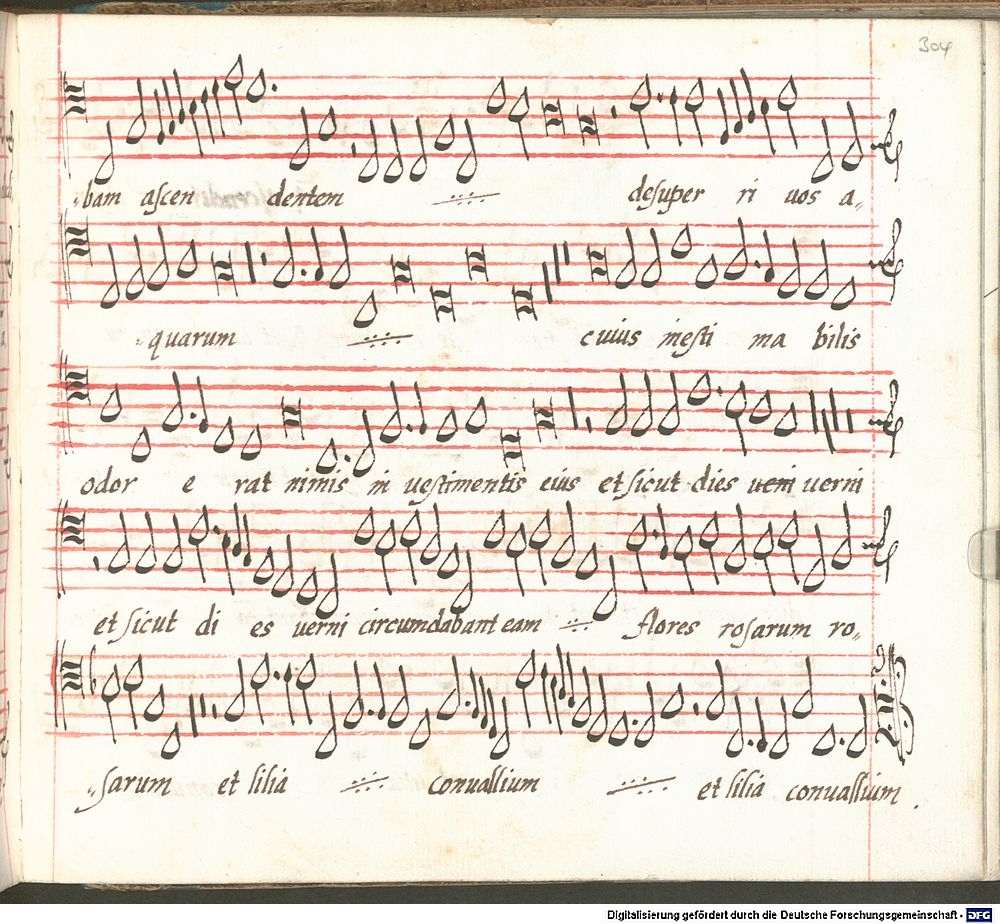 304
bam ascen dentem desuper ri uos a
quarum cuius inesti ma bilis
odor e rat nimis in uestimentis eius et sicut dies ueni uerni
et sicut di es uerni circumdabant eam flores rosarum ro
sarum et lilia conuallium et lilia conuallium.
Digitalisierung gefördert durch die Deutsche Forschungsgemeinschaft - DFG